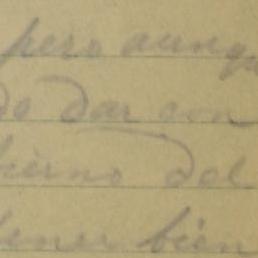 pero aunqu
do dar con
bierno del
tener bien